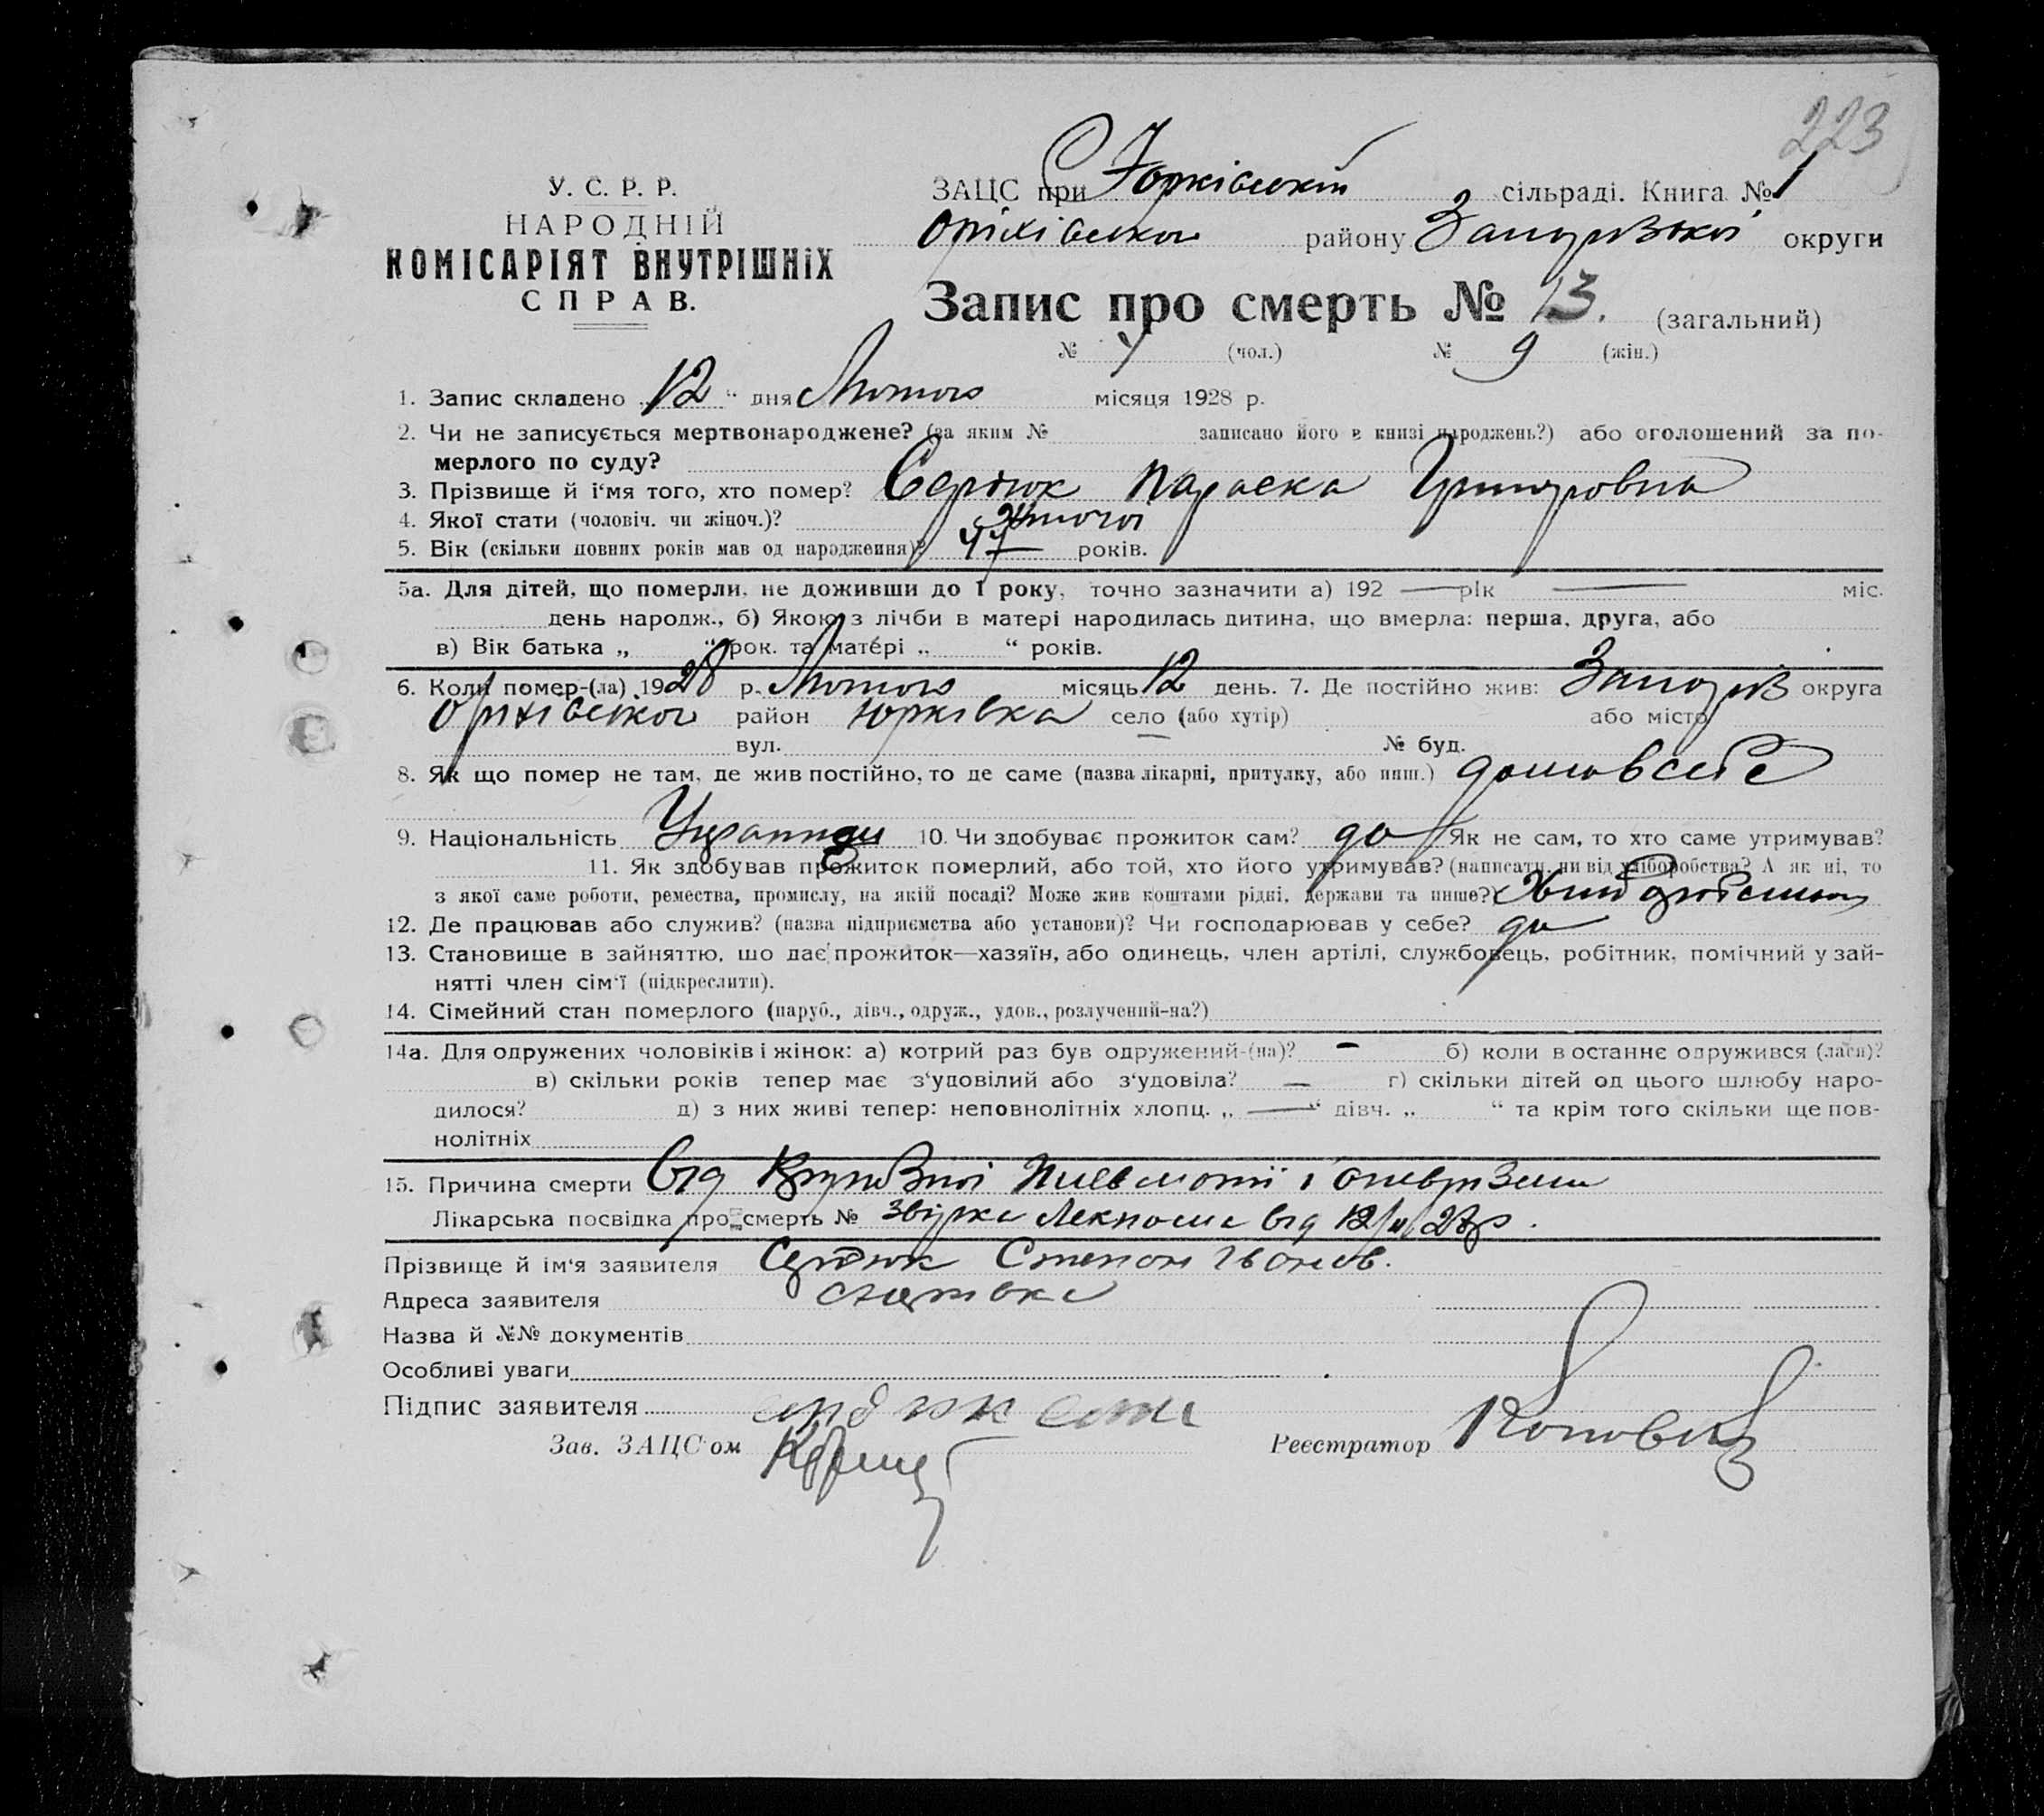 223
У. С. Р. Р.
НАРОДНІЙ
КОМІСАРІЯТ ВНУТРІШНІХ
СПРАВ.
ЗАЦС при Юрківській сільраді. Книга № 1
Оріхівського району Запорізької округи
Запис про смерть № 13. (загальний)
№ 4 (чол.) № 9 (жін.)
1. Запис складено „12“ дня Лютого місяця 1928 р.
2. Чи не записується мертвонароджене? (за яким № записано його в книзі народжень?) або оголошений за по-
мерлого по суду?
3. Прізвище й і‘мя того, хто помер? Сердюк Параска Григоровна
4. Якої стати (чоловіч. чи жіноч.)? жіночої
5. Вік (скільки повних років мав од народження)? 47 років.
5а. Для дітей, що померли, не доживши до 1 року, точно зазначити а) 192 — рік — міс.
день народж., б) Якою з лічби в матері народилась дитина, що вмерла: перша, друга, або
в) Вік батька „ “ рок. та матері „ “ років.
6. Коли помер-(ла) 1928 р. Лютого місяць 12 день. 7. Де постійно жив: Запоріз округа
Оріхівського район Юрківка село (або хутір) або місто
вул. № буд.
8. Як що помер не там, де жив постійно, то де саме (назва лікарні, притулку, або инш.) дома в себе
9. Національність 10. Чи здобуває прожиток сам? да Як не сам, то хто саме утримував?
11. Як здобував прожиток померлий, або той, хто його утримував? (написати, чи від хліборобства? А як ні, то
з якої саме роботи, ремества, промислу, на якій посаді? Може жив коштами рідні, держави та инше?) Хліборобством
12. Де працював або служив? (назва підприємства або установи)? Чи господарював у себе? да
13. Становище в зайняттю, що дає прожиток—хазяїн, або одинець, член артілі, службовець, робітник, помічний у зай-
нятті член сім‘ї (підкреслити).
14. Сімейний стан померлого (паруб., дівч., одруж., удов., розлучений-на?)
14а. Для одружених чоловіків і жінок: а) котрий раз був одружений-(на)? — б) коли в останнє одружився (лася)?
в) скільки років тепер має з‘удовілий або з‘удовіла? — г) скільки дітей од цього шлюбу наро-
дилося? д) з них живі тепер: неповнолітніх хлопц. „ —“ дівч. „ “ та крім того скільки ще пов-
нолітніх
15. Причина смерти Від Крупозної Пневмонії і
Лікарська посвідка про смерть № Лекпома від 12/II 28р.
Прізвище й ім‘я заявителя Сердюк Степан Іванов.
Адреса заявителя с Юрківка
Назва й №№ документів
Особливі уваги
Підпис заявителя сердюк
Зав. ЗАЦС‘ом Реєстратор